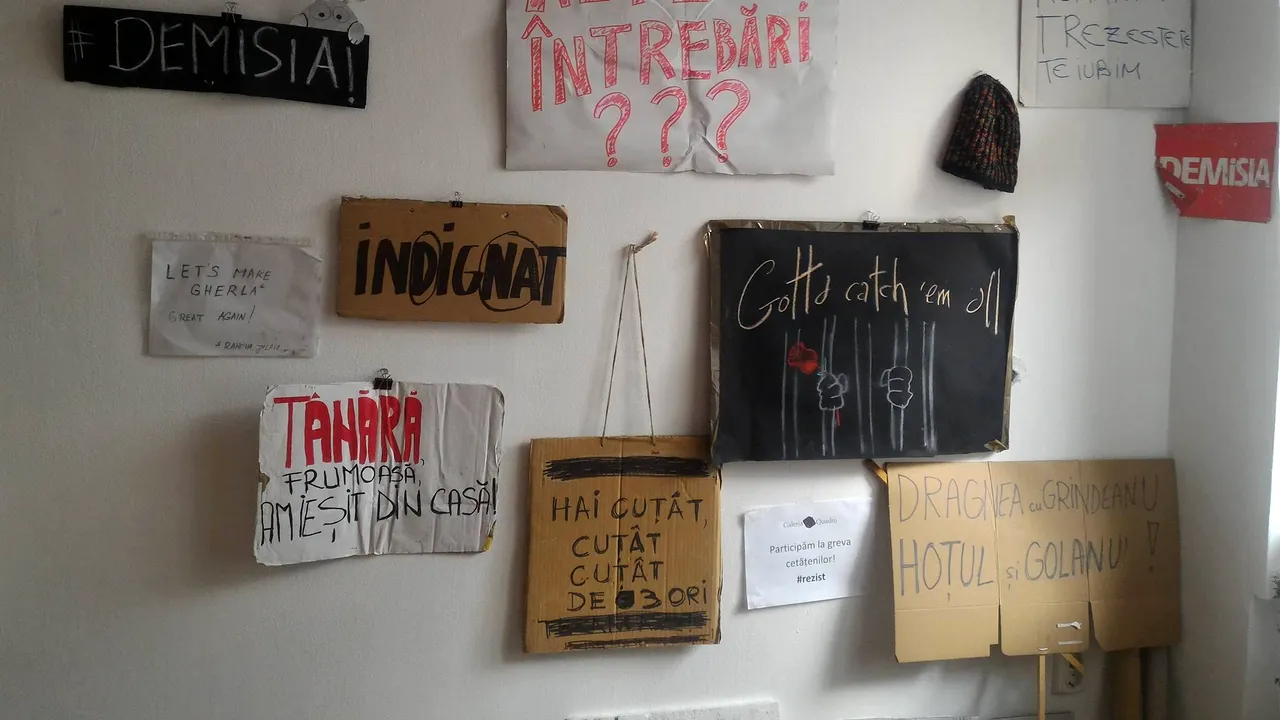 # DEMISIA!
ÎNTREBĂRI
???
TREZEȘTETE
TE IUBIM
DEMiSIA
LET'S MAKE
GHERLA*
GREAT AGAIN!
iNDiGNAT
Gotta catch 'em all
TÂNĂRĂ,
FRUMOASĂ,
AM IEȘIT DIN CASĂ!
HAI CUȚÂT,
CUȚÂT
CUȚÂT
DE 3 ORi
Galeria Quadro
Participăm la greva
cetățenilor!
#rezist
DRAGNEA cu GRINDEANU
HOȚUL și GOLANU' !